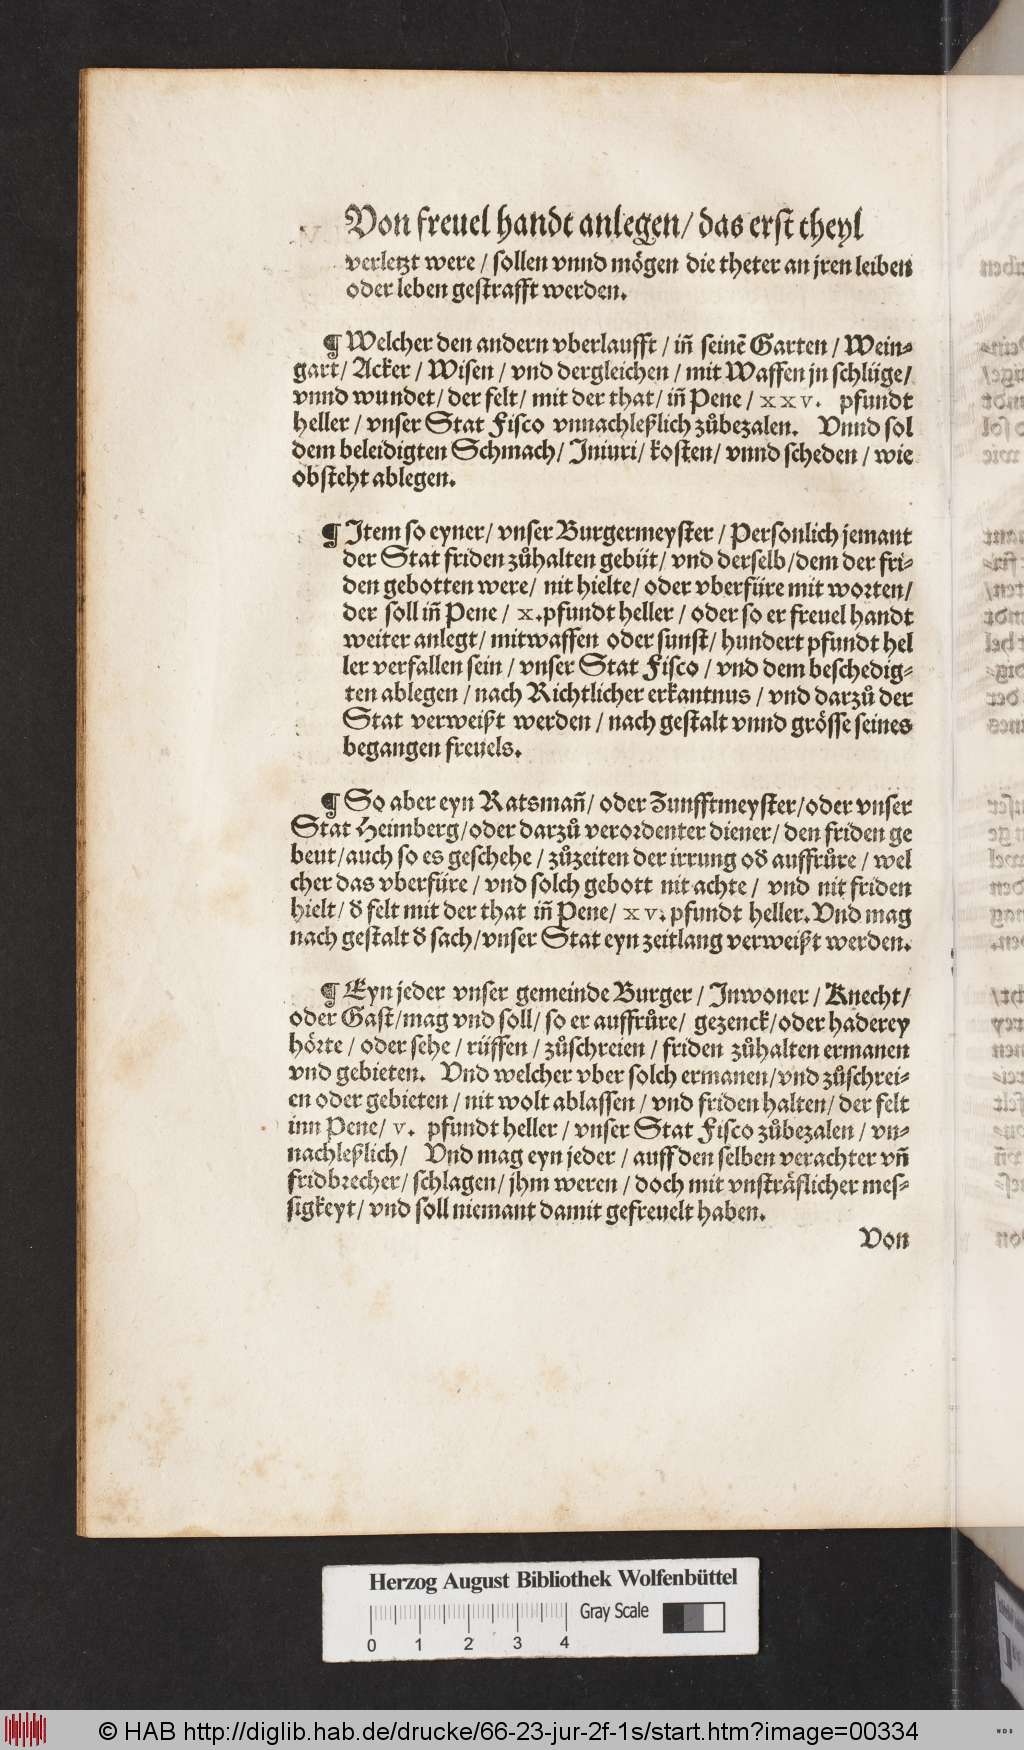 Von freuel handt anlegen / das erst theyl
verletzt were / sollen vnnd mögen die theter an jren leiben
oder leben gestrafft werden.
¶ Welcher den andern vberlaufft / iñ seinē Garten / Wein⸗
gart / Acker / Wisen / vnd dergleichen / mit Waffen jn schlüge /
vnnd wundet / der felt / mit der that / iñ Pene / xxv. pfundt
heller / vnser Stat Fisco vnnachleßlich zůbezalen. Vnnd sol
dem beleidigten Schmach / Iniuri / kosten / vnnd scheden / wie
obsteht ablegen.
¶ Item so eyner / vnser Burgermeyster / Personlich jemant
der Stat friden zůhalten gebüt / vnd derselb / dem der fri⸗
den gebotten were / nit hielte / oder vberfüre mit worten /
der soll iñ Pene / x. pfundt heller / oder so er freuel handt
weiter anlegt / mitwaffen oder sunst / hundert pfundt hel
ler verfallen sein / vnser Stat Fisco / vnd dem beschedig⸗
ten ablegen / nach Richtlicher erkantnus / vnd darzů der
Stat verweißt werden / nach gestalt vnnd grösse seines
begangen freuels.
¶ So aber eyn Ratsmañ / oder Zunfftmeyster / oder vnser
Stat Heimberg / oder darzů verordenter diener / den friden ge
beut / auch so es geschehe / zůzeiten der irrung oď auffrůre / wel
cher das vberfüre / vnd solch gebott nit achte / vnd nit friden
hielt / ď felt mit der that iñ Pene / xv. pfundt heller. Vnd mag
nach gestalt ď sach / vnser Stat eyn zeitlang verweißt werden.
¶ Eyn jeder vnser gemeinde Burger / Inwoner / Knecht /
oder Gast / mag vnd soll / so er auffrůre / gezenck / oder haderey
hörte / oder sehe / rüffen / zůschreien / friden zůhalten ermanen
vnd gebieten. Vnd welcher vber solch ermanen / vnd zůschrei⸗
en oder gebieten / nit wolt ablassen / vnd friden halten / der felt
inn Pene / v. pfundt heller / vnser Stat Fisco zůbezalen / vn⸗
nachleßlich / Vnd mag eyn jeder / auff den selben verachter vñ
fridbrecher / schlagen / jhm weren / doch mit vnsträflicher mes⸗
sigkeyt / vnd soll niemant damit gefreuelt haben.
Von
Herzog August Bibliothek Wolfenbüttel
Gray Scale
0 1 2 3 4
© HAB http://diglib.hab.de/drucke/66-23-jur-2f-1s/start.htm?image=00334